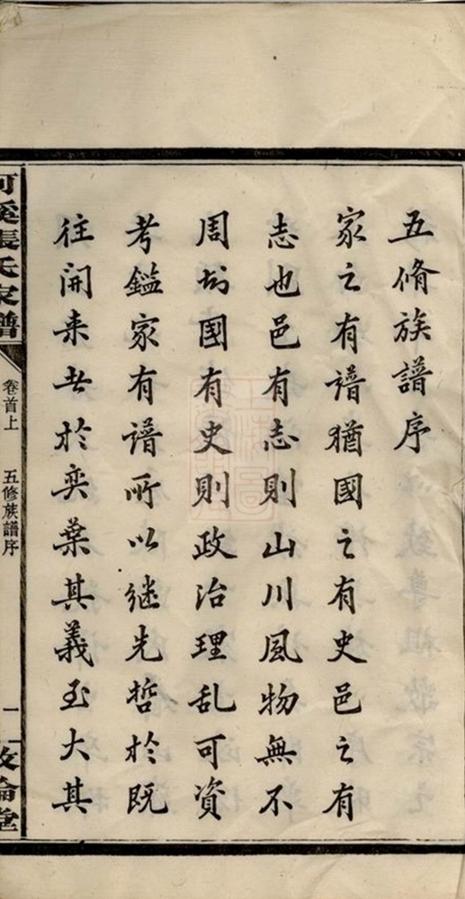 五脩族譜序
家之有譜猶國之有史邑之有
志也邑有志則山川風物無不
周知國有史則政治理乱可資
考鑑家有谱所以继先哲於既
往開来者於奕葉其義至大其
溪張氏家譜
卷首上
五修族譜序
一
倫堂